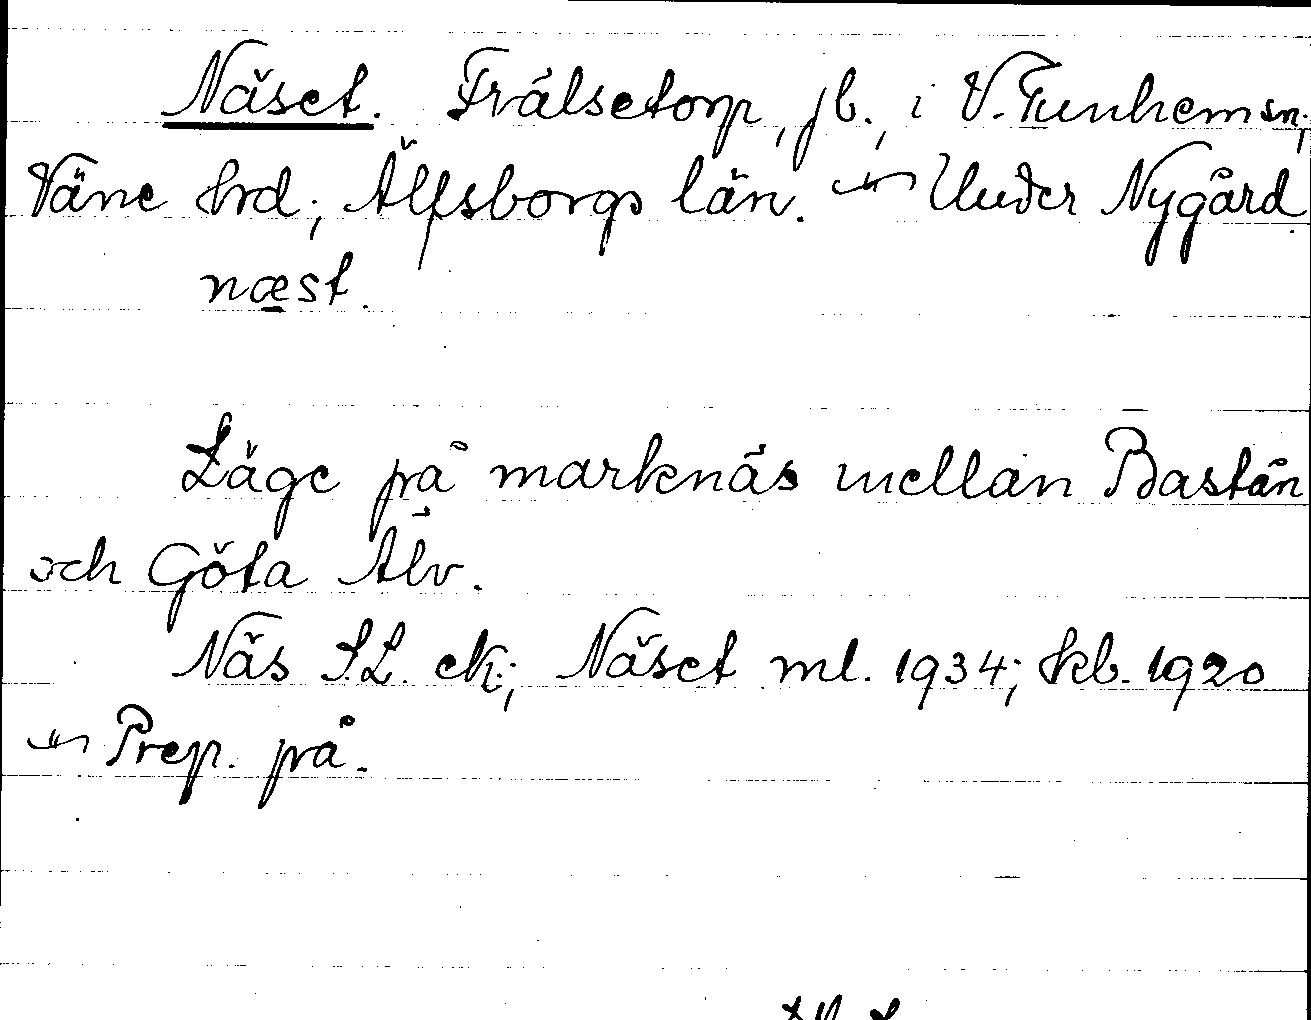 Näset. Frälsetorp, jb., i V. Tunhem sn;
Väne hrd; Älfsborgs län. — Under Nygård
næst.
Läge på marknäs mellan Bastån
och Göta Älv.
Näs S.L. ek.; Näset ml. 1934; kb. 1920
— Prep. på.